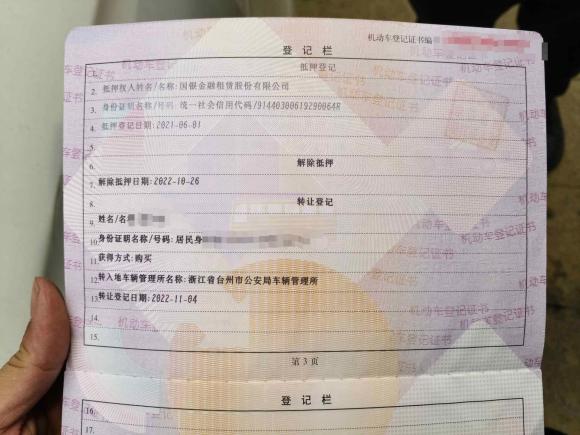 机动车登记证书编
登记栏
1. 抵押登记
2. 抵押权人姓名/名称:国银金融租赁股份有限公司
3. 身份证明名称/号码:统一社会信用代码/91440300619290064R
4. 抵押登记日期:2021-06-01
5.
6. 解除抵押
7. 解除抵押日期:2022-10-26
8. 转让登记
9. 姓名/名
10. 身份证明名称/号码:居民身
11. 获得方式:购买
12. 转入地车辆管理所名称:浙江省台州市公安局车辆管理所
13. 转让登记日期:2022-11-04
14.
15.
第3页
登记栏
16.
17.